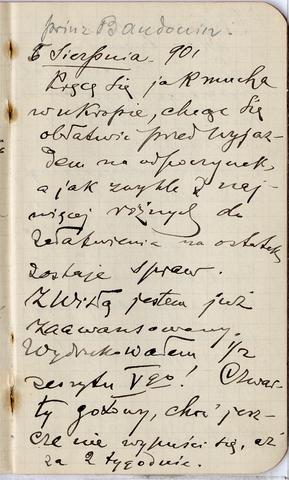 prinz Baudouin.
5 Sierpnia. 90.
Kręcę się jak mucha
w ukropie, chcąc się
obłatwić przed wyjaz-
dem na odpoczynek,
a jak zwykle naj-
więcej różnych do
załatwienia na ostatek
zostaje spraw.
Z Wisłą jestem już
zaawansowany.
Wydrukowałem 1/2
zeszytu Vgo! Czwar-
ty gotowy, choć jesz-
cze nie wypuści się, aż
za 2 tygodnie.